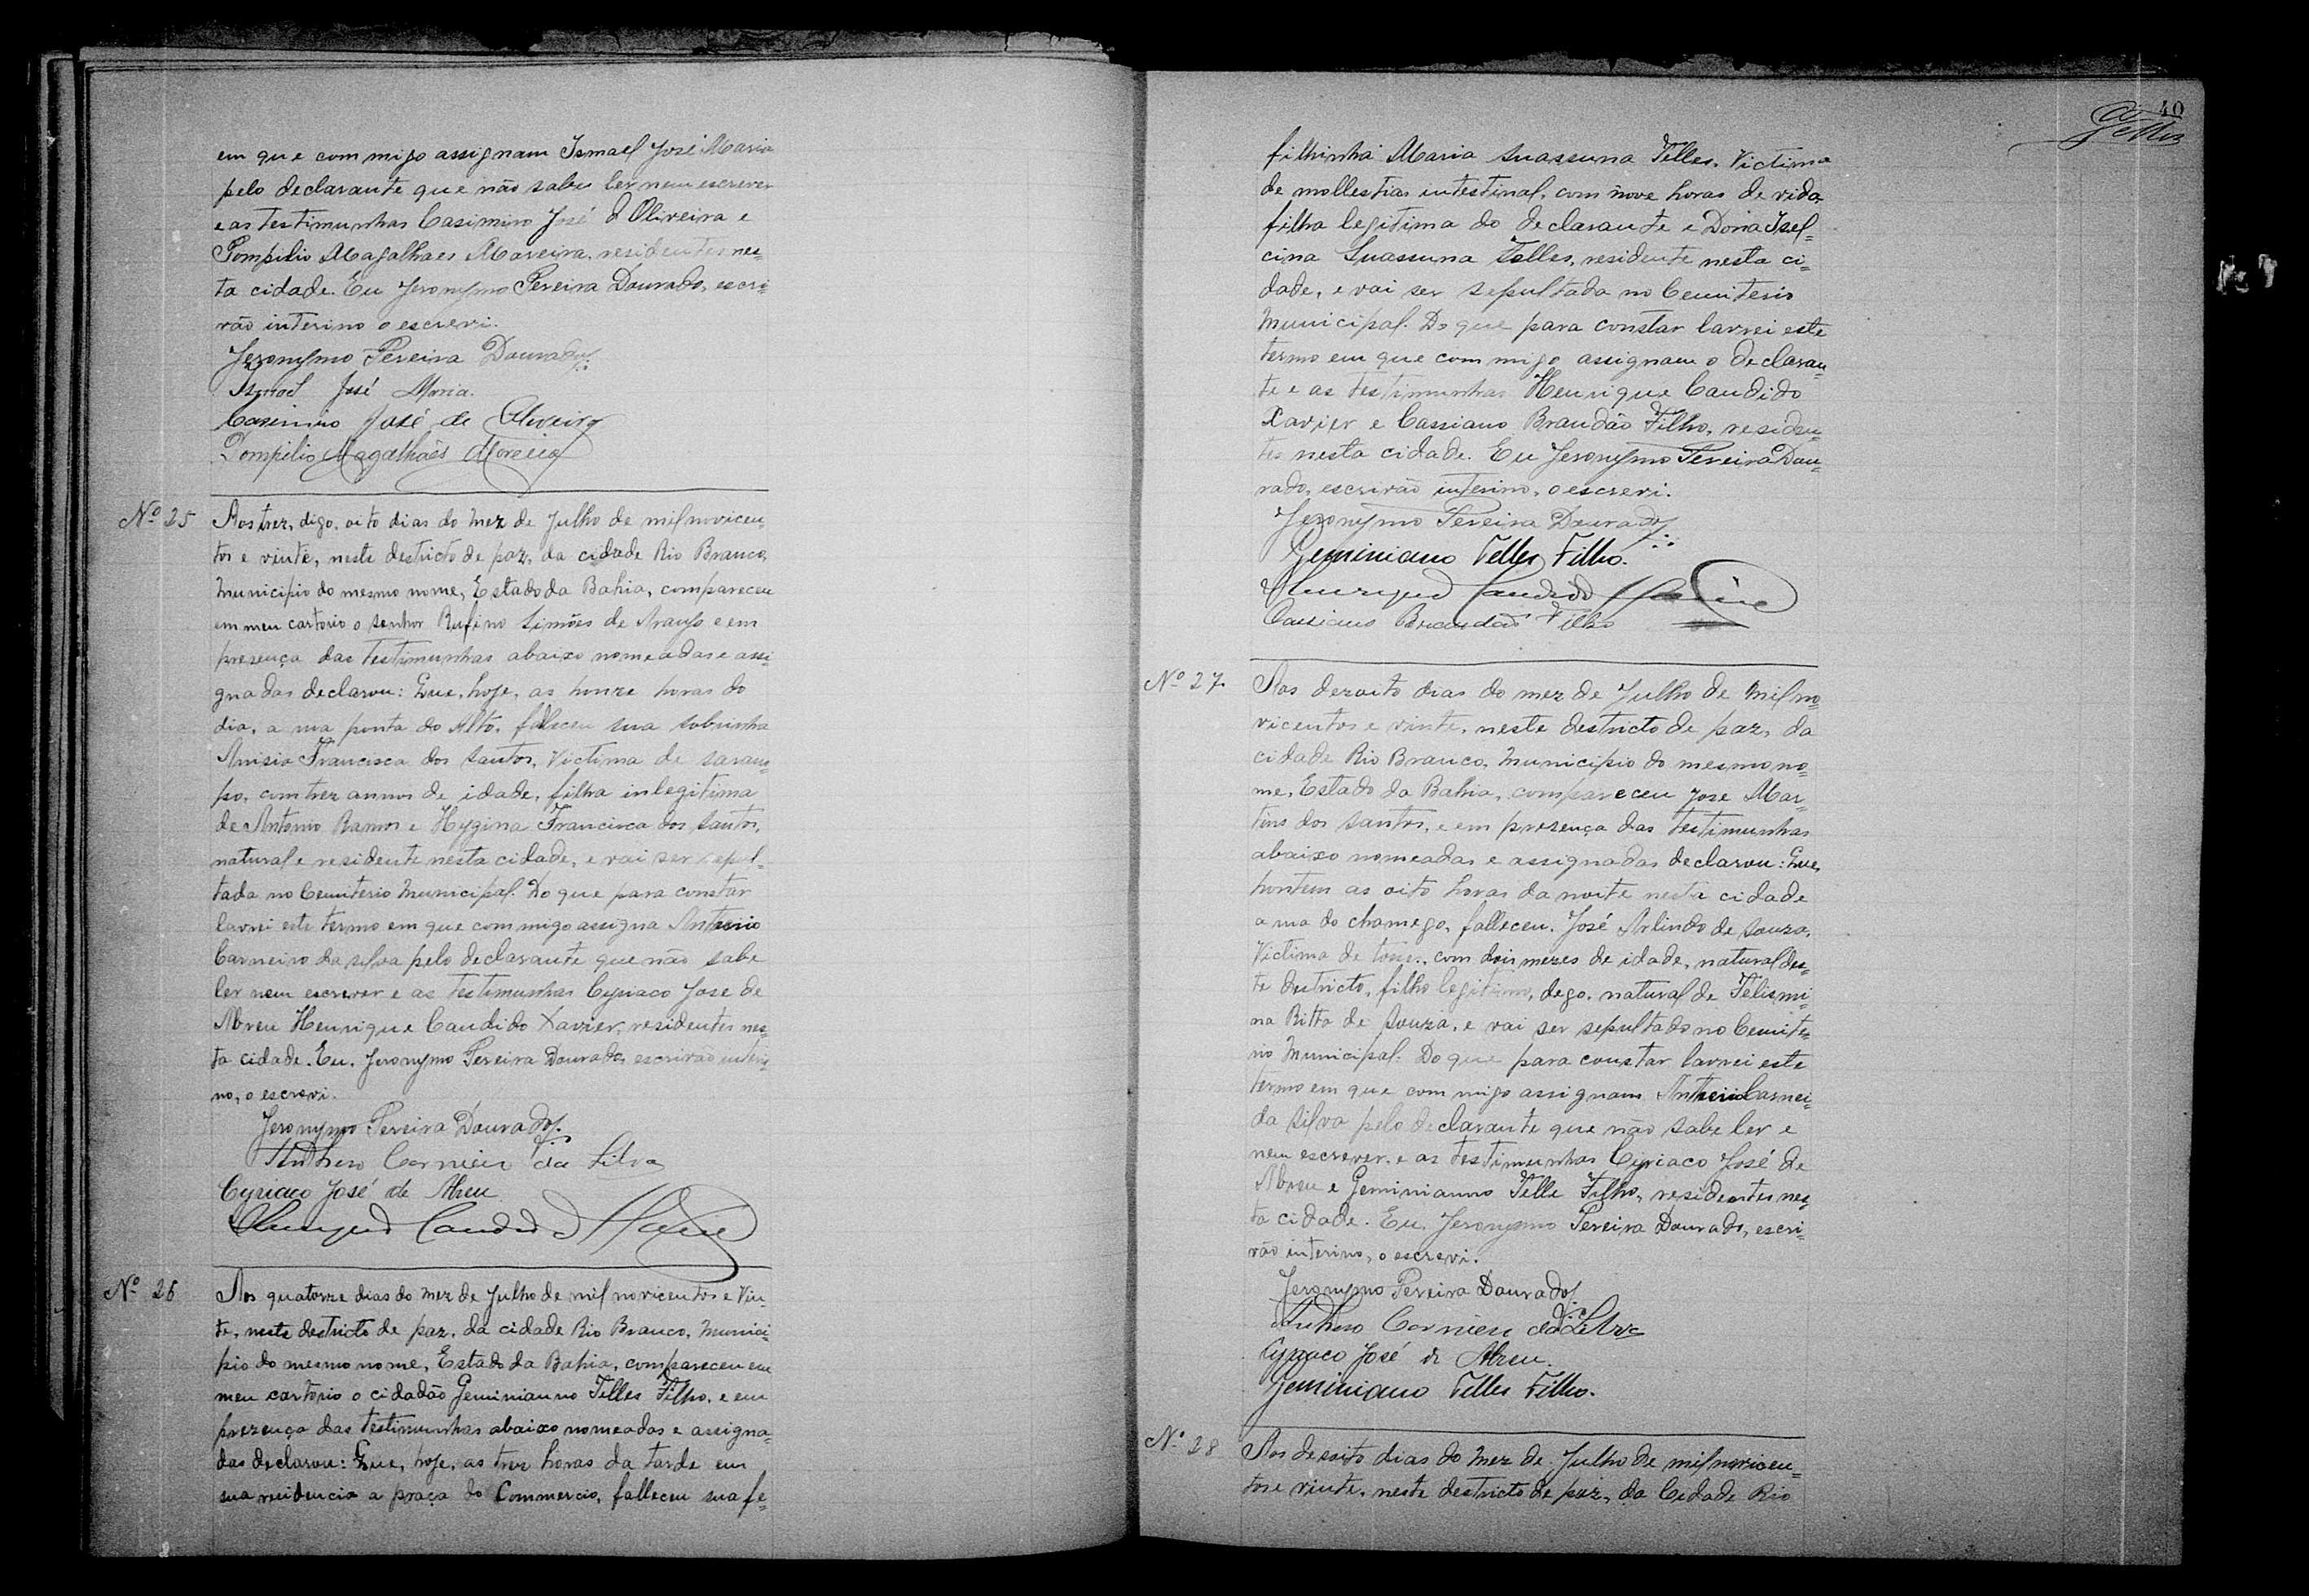 em que com migo assignam Ismael José Maria
pelo declarante que não sabe ler nem escrever
e as testimunhas Casimiro José d Oliveira e
Pompilio Magalhaes Moreira, residentes nes=
ta cidade. Eu Jeronymo Pereira Dourado, escri=
vão interino o escrevi.
Jeronymo Pereira Dourado
Ismael José Maria.
Casimiro José de Oliveira
Pompilio Magalhães Moreira
Nº 25
Aos trez, digo, oito dias do mez de Julho de mil novicen=
tos e vinte, neste destricto de paz, da cidade Rio Branco,
municipio do mesmo nome, Estado da Bahia, compareceu
em meu cartorio o senhor Rufino Simões de Araujo e em
presença das testimunhas abaixo nomeadas e assi=
gnadas declarou: Que, hoje, as honze horas do
dia, a rua ponta do Alto, falleceu sua sobrinha
Anisia Francisca dos Santos, victima de saram=
po, com trez annos de idade, filha inlegitima
de Antonio Ramos e Hygina Francisca dos Santos,
natural e residente nesta cidade, e vai ser sepul=
tada no Cemiterio Municipal. Do que para constar
lavrei este termo em que com migo assigna Antherio
Carneiro da silva pelo declarante que não sabe
ler nem escrever e as testimunhas Cyriaco Jose de
Abreu Henrique Candido Xavier, residentes nes=
ta cidade. Eu, Jeronymo Pereira Dourado, escrivão interi=
no, o escrevi.
Jeronymo Pereira Dourado
Anthero Carneiro da Silva
Cyriaco José de Abreu
Henrique Candido Xavier
Nº 26
Aos quatorze dias do mez de Julho de mil novicentos e vin=
te, neste destricto de paz, da cidade Rio Branco, munici=
pio do mesmo nome, Estado da Bahia, compareceu em
meu cartorio o cidadão Geminianno Telles Filho, e em
prezença das testimunhas abaixo nomeadas e assigna=
das declarou: Que, hoje, as trez horas da tarde em
sua residencia a praça do Commercio, falleceu sua fe=
40
Telles
filhinha Maria Suassuna Telles, victima
de mollestias intestinal, com nove horas de vida,
filha legitima do declarante e Dona Isel=
cina Suassuna Telles, residente nesta ci=
dade, e vai ser sepultada no Cemiterio
Municipal. Do que para constar lavrei este
termo em que com migo assignam o declaran=
te e as testimunhas Henrique Candido
Xavier e Cassiano Brandão Filho, residen=
tes nesta cidade. Eu Jeronymo Pereira Dou=
rado, escrivão interino, o escrevi.
Jeronymo Pereira Dourado
Geminiano Telles Filho.
Henrique Candido Xavier
Cassiano Brandão Filho
Nº 27
Aos dezoito dias do mez de Julho de mil no=
vicentos e vinte, neste destricto de paz, da
cidade Rio Branco, municipio do mesmo no=
me, Estado da Bahia, compareceu Jose Mar=
tins dos Santos, e em presença das testimunhas
abaixo nomeadas e assignadas declarou: Que,
hontem as oito horas da noite nesta cidade
a rua do chamego, falleceu, José Arlindo de Souza,
victima de tosse, com dois mezes de idade, natural des=
te destricto, filho legitimo, dego, natural de Felismi=
na Ritta de Souza, e vai ser sepultado no Cemite=
rio Municipal. Do que para constar lavrei este
termo em que com migo assignam Antherio Carnei=
da silva pelo declarante que não sabe ler e
nem escrever, e as testimunhas Cyriaco José de
Abreu e Geminianno Telle Filho, residentes nes=
ta cidade. Eu, Jeronymo Pereira Dourado, escri=
vão interino, o escrevi.
Jeronymo Pereira Dourado
Anthero Carneiro da Silva
Cyriaco José de Abreu.
Geminiano Telles Filho.
Nº 28
Aos desoito dias do mez de Julho de mil novicen=
tos e vinte, neste destricto de paz, da Cidade Rio